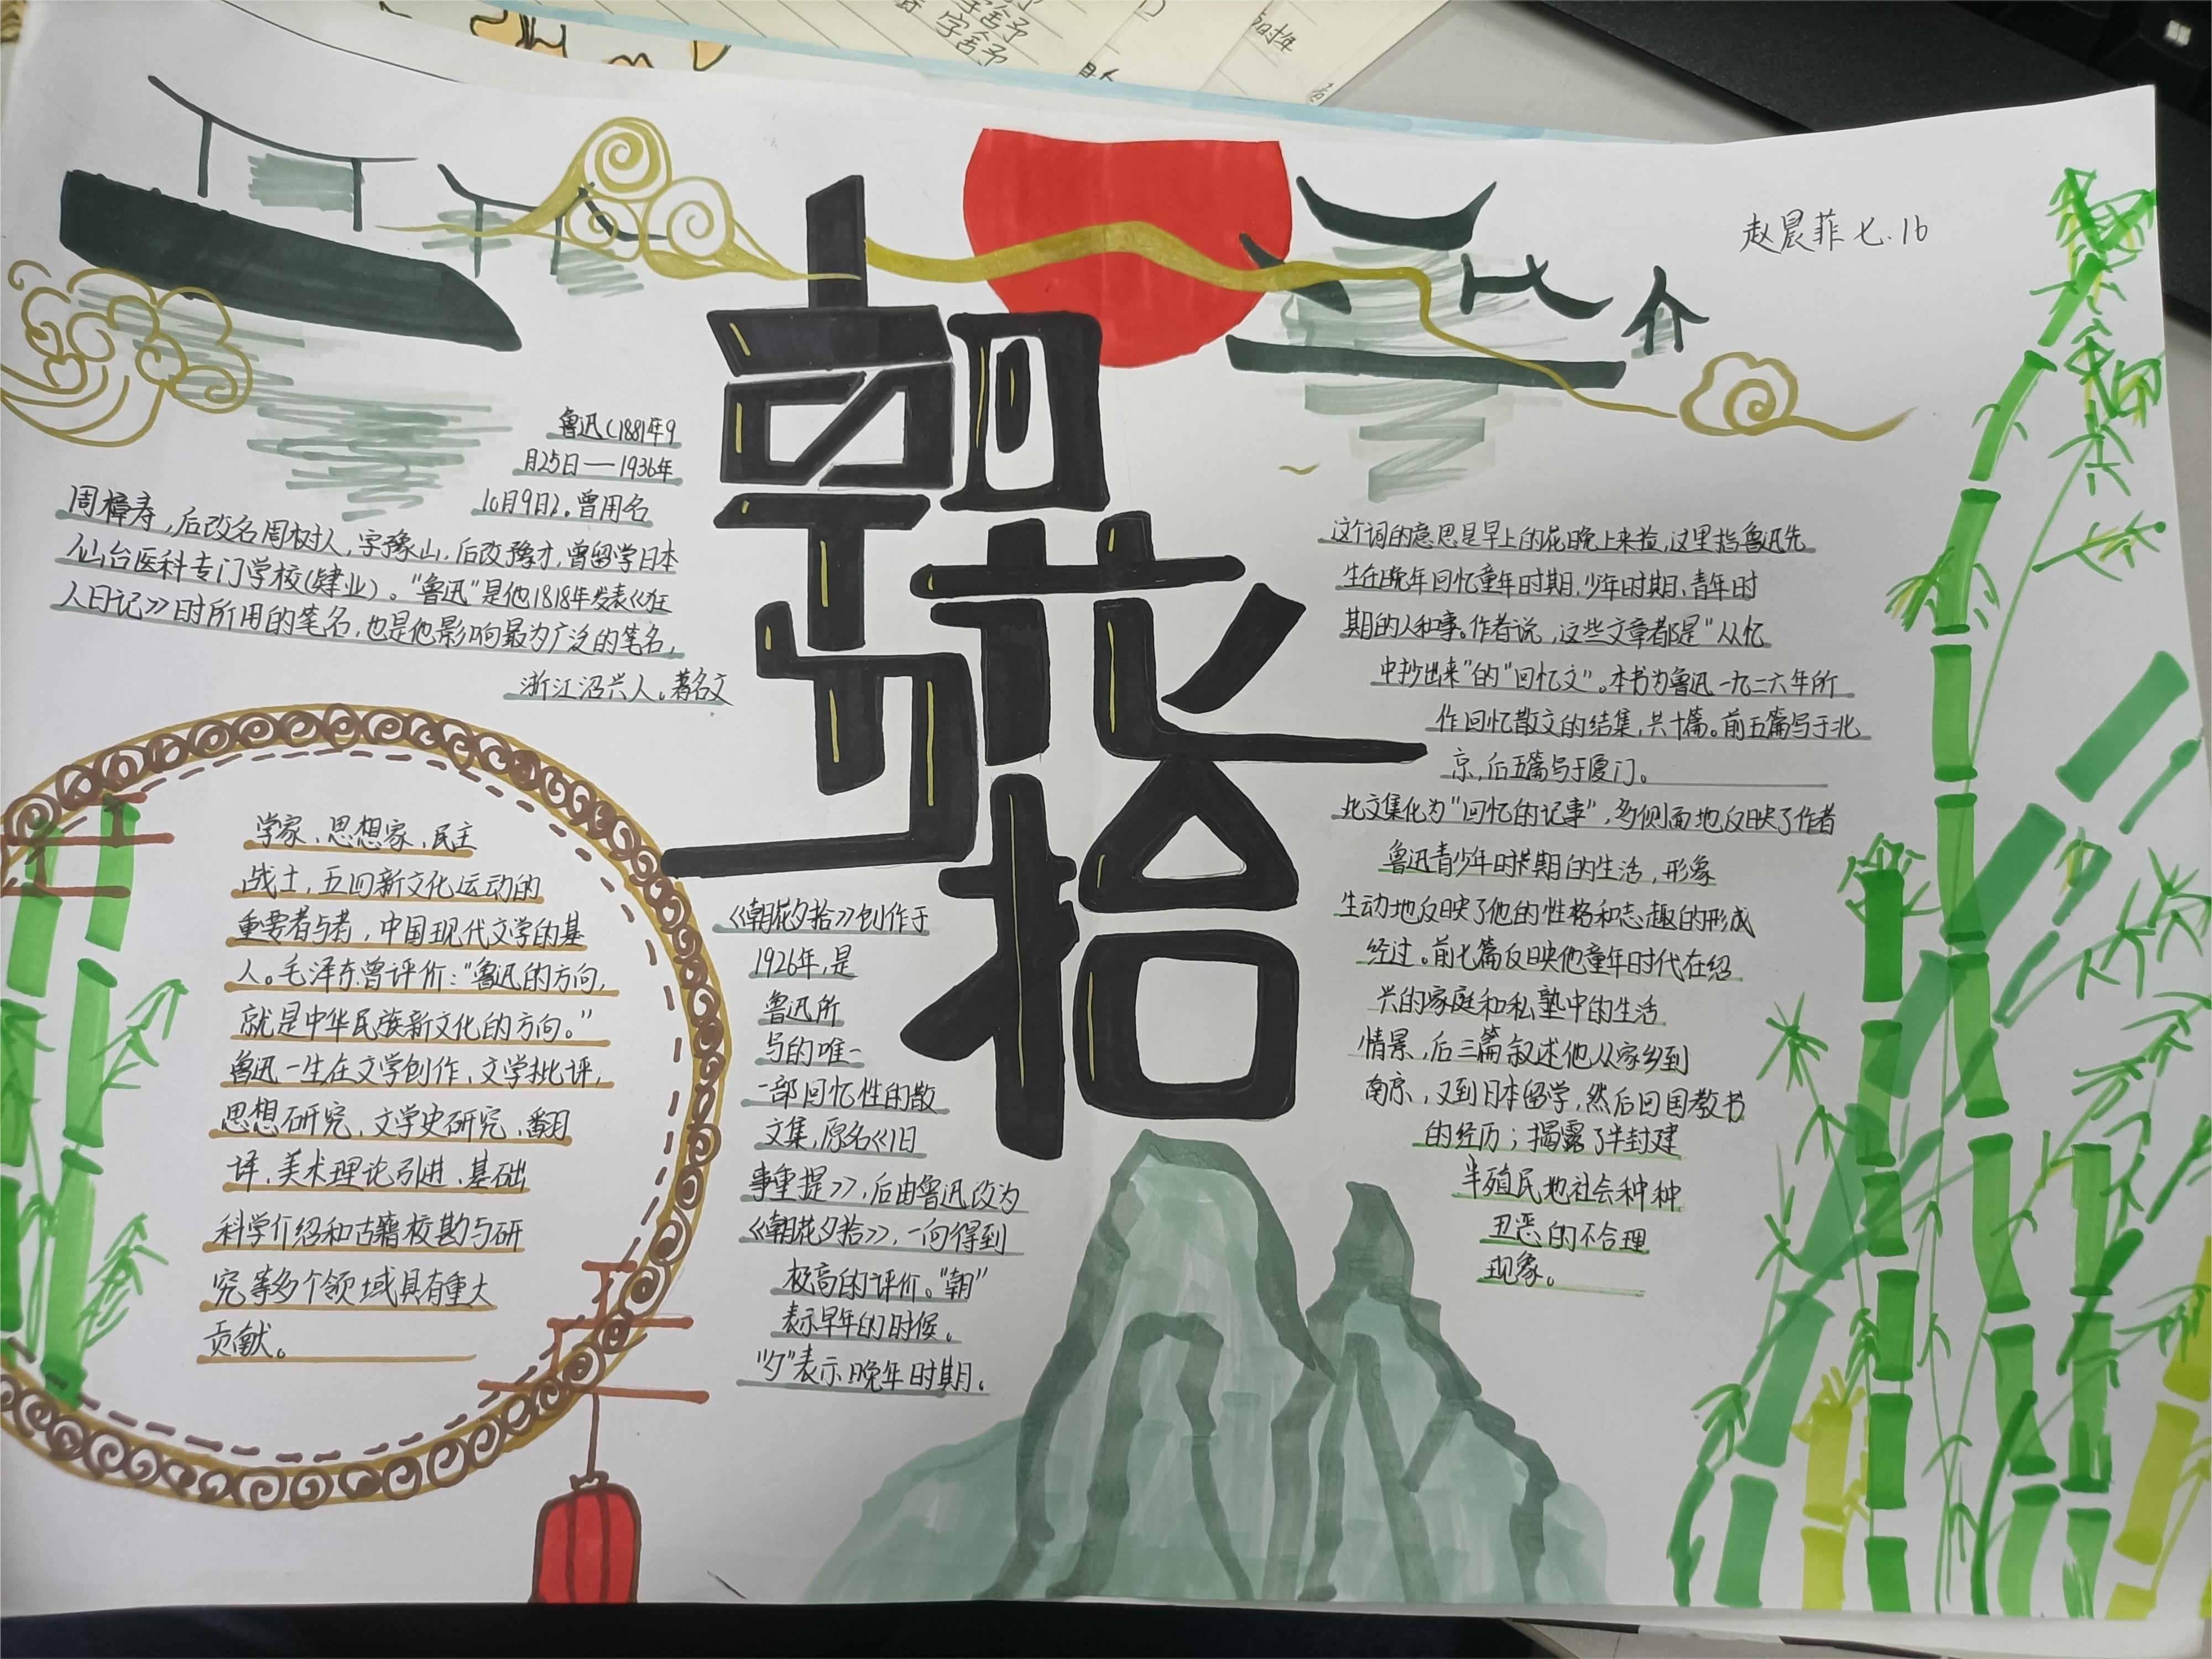 朝花夕拾
赵晨菲 七.16
鲁迅(1881年9
月25日——1936年
10月9日),曾用名
周樟寿,后改名周树人,字豫山,后改豫才,曾留学日本
仙台医科专门学校(肄业)。“鲁迅”是他1818年发表《狂
人日记》时所用的笔名,也是他影响最为广泛的笔名,
浙江沼兴人。著名文
学家、思想家、民主
战士,五四新文化运动的
重要者与者,中国现代文学的基
人。毛泽东曾评价:“鲁迅的方向,
就是中华民族新文化的方向。”
鲁迅一生在文学创作、文学批评,
思想研究、文学史研究、翻
译、美术理论引进、基础
科学介绍和古籍校勘与研
究等多个领域具有重大
贡献。
《朝花夕拾》创作于
1926年,是
鲁迅所
写的唯一
一部回忆性的散
文集,原名《旧
事重提》,后由鲁迅改为
《朝花夕拾》,一向得到
极高的评价。“朝”
表示早年的时候。
“夕”表示晚年时期。
这个词的意思是早上的花晚上来捡,这里指鲁迅先
生在晚年回忆童年时期,少年时期、青年时
期的人和事。作者说,这些文章都是“从忆
中抄出来”的“回忆文”。本书为鲁迅一九二六年所
作回忆散文的结集,共十篇。前五篇写于北
京,后五篇写于厦门。
此文集化为“回忆的记事”,多侧面地反映了作者
鲁迅青少年时期的生活,形象
生动地反映了他的性格和志趣的形成
经过。前七篇反映他童年时代在绍
兴的家庭和私塾中的生活
情景,后三篇叙述他从家乡到
南京,又到日本留学,然后回国教书
的经历;揭露了半封建
半殖民地社会种种
丑恶的不合理
现象。